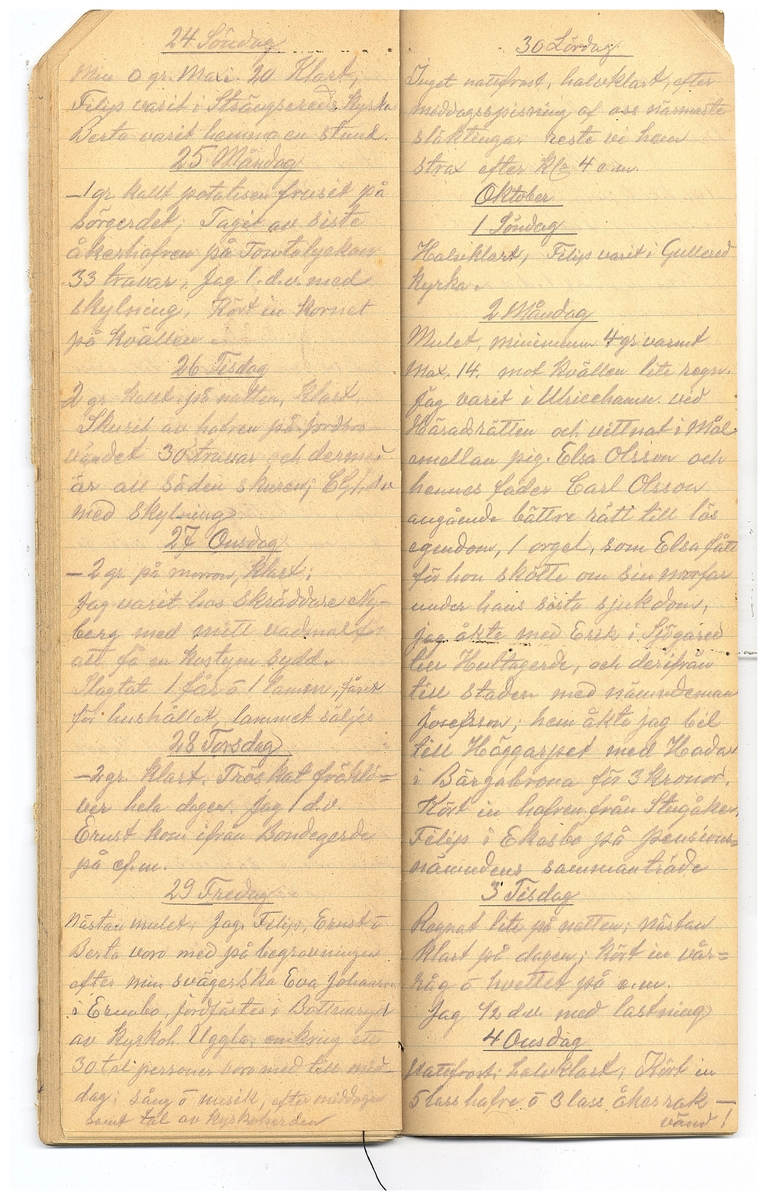 24 Söndag
Min 0 gr. Max. 20 Klart,
Filip varit i Strängsereds Kyrka
Berta varit hemma en stund.
25 Måndag
–1 gr kallt potatisen frusit på
Sörgerdet; Taget av siste
åkerhafren på Tomtalyckan
33 travar, Jag 1. d.v. med
skylning, Kört in Kornet
på kvällen
26 Tisdag
2 gr kallt på natten, Klart,
Skurit av hafren på jordbro
vändet 30 travar och dermed
är all säden skuren;
med skylning
27 Onsdag
–2 gr. på morron, Klart;
Jag varit hos Skräddare Ny-
berg med mitt vadmal för
att få en Kostym sydd.
Slagtat 1 får o 1 lamm, fåret
för hushållet, lammet säljes
28 Torsdag
–2 gr. Klart, Tröskat fröklö=
ver hela dagen, jag 1 d.v.
Ernst kom ifrån Bondegerde
på ef.m.
29 Fredag
Nästan mulet; Jag, Filip, Ernst o
Berta voro med på begravningen
efter min svägerska Eva Johanson
i Ernabo, jordfästes i Bottnaryd
av Kyrkoh. Uggla, omkring ett
30 tal personer voro med till mid-
dag; sång o musik, efter middagen
samt tal av Kyrkoherden
30 Lördag
Inget nattfrost, halvklart, efter
middagsspisning af oss närmaste
släktingar reste vi hem
strax efter Kl. 4 e.m.
Oktober
1 Söndag
Halvklart, Filip varit i Gullered
Kyrka.
2 Måndag
Mulet, minimum 4 gr varmt
Max. 14. mot kvällen lite regn.
Jag varit i Ulricehamn ved
Häradsrätten och vittnat i Mål
emellan pig. Elsa Olsson och
hennes fader Carl Olsson
angående bättre rätt till lös
egendom, 1 orgel, som Elsa fått
för hon skötte om sin morfar
under hans sista sjukdom,
jag åkte med Erik i Sjögared
till Hultagerde, och derifrån
till staden med nämndeman
Josefsson; hem åkte jag bil
till Häggarpet med
i Bärgabrona för 3 Kronor.
Kört in hafren från Stugåker,
Filip i Ekasbo på pensions=
nämndens sammanträde
3 Tisdag
Regnat lite på natten; nästan
klart på dagen; Kört in vår=
råg o hvettet på e.m.
Jag 1/2 d.v. med lastning
4 Onsdag
Nattfrost; halvklart; Kört in
5 lass hafre o 3 lass åkerrak—
vänd!